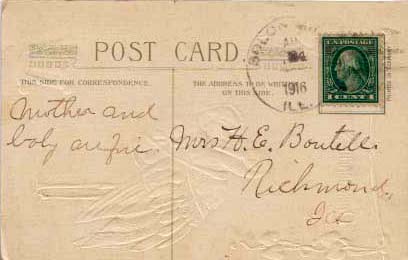 POST CARD.
THIS SIDE FOR CORRESPONDENCE.
THE ADDRESS TO BE
ON THIS SIDE.
24
1916
ILL.
U.S. POSTAGE
1 CENT 1
Mother and
baby are fine.
Mrs H. E. Boutell.
Richmond,